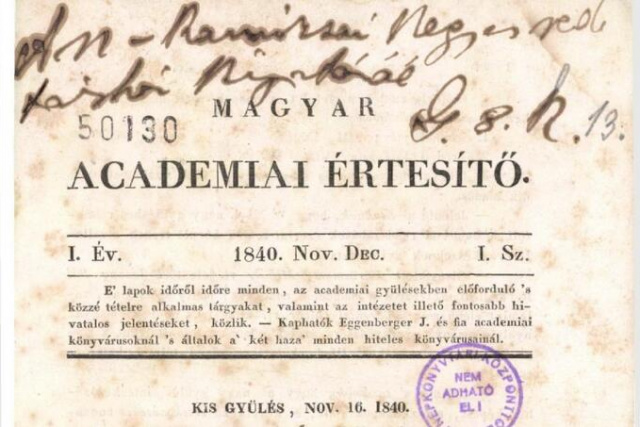 G. 8. K. 13.
50130
MAGYAR
ACADEMIAI ÉRTESÍTŐ.
I. Év. 1840. Nov. Dec. I. Sz.
E' lapok időről időre minden, az academiai gyülésekben előforduló 's
közzé tételre alkalmas tárgyakat, valamint az intézetet illető fontosabb hi-
vatalos jelentéseket, közlik. — Kaphatók Eggenberger J. és fia academiai
könyvárusoknál 's általok a' két haza' minden hiteles könyvárusainál.
KIS GYÜLÉS, NOV. 16. 1840.
NÉPKÖNYVTÁRI KÖZPONT
NEM
ADHATÓ
EL!